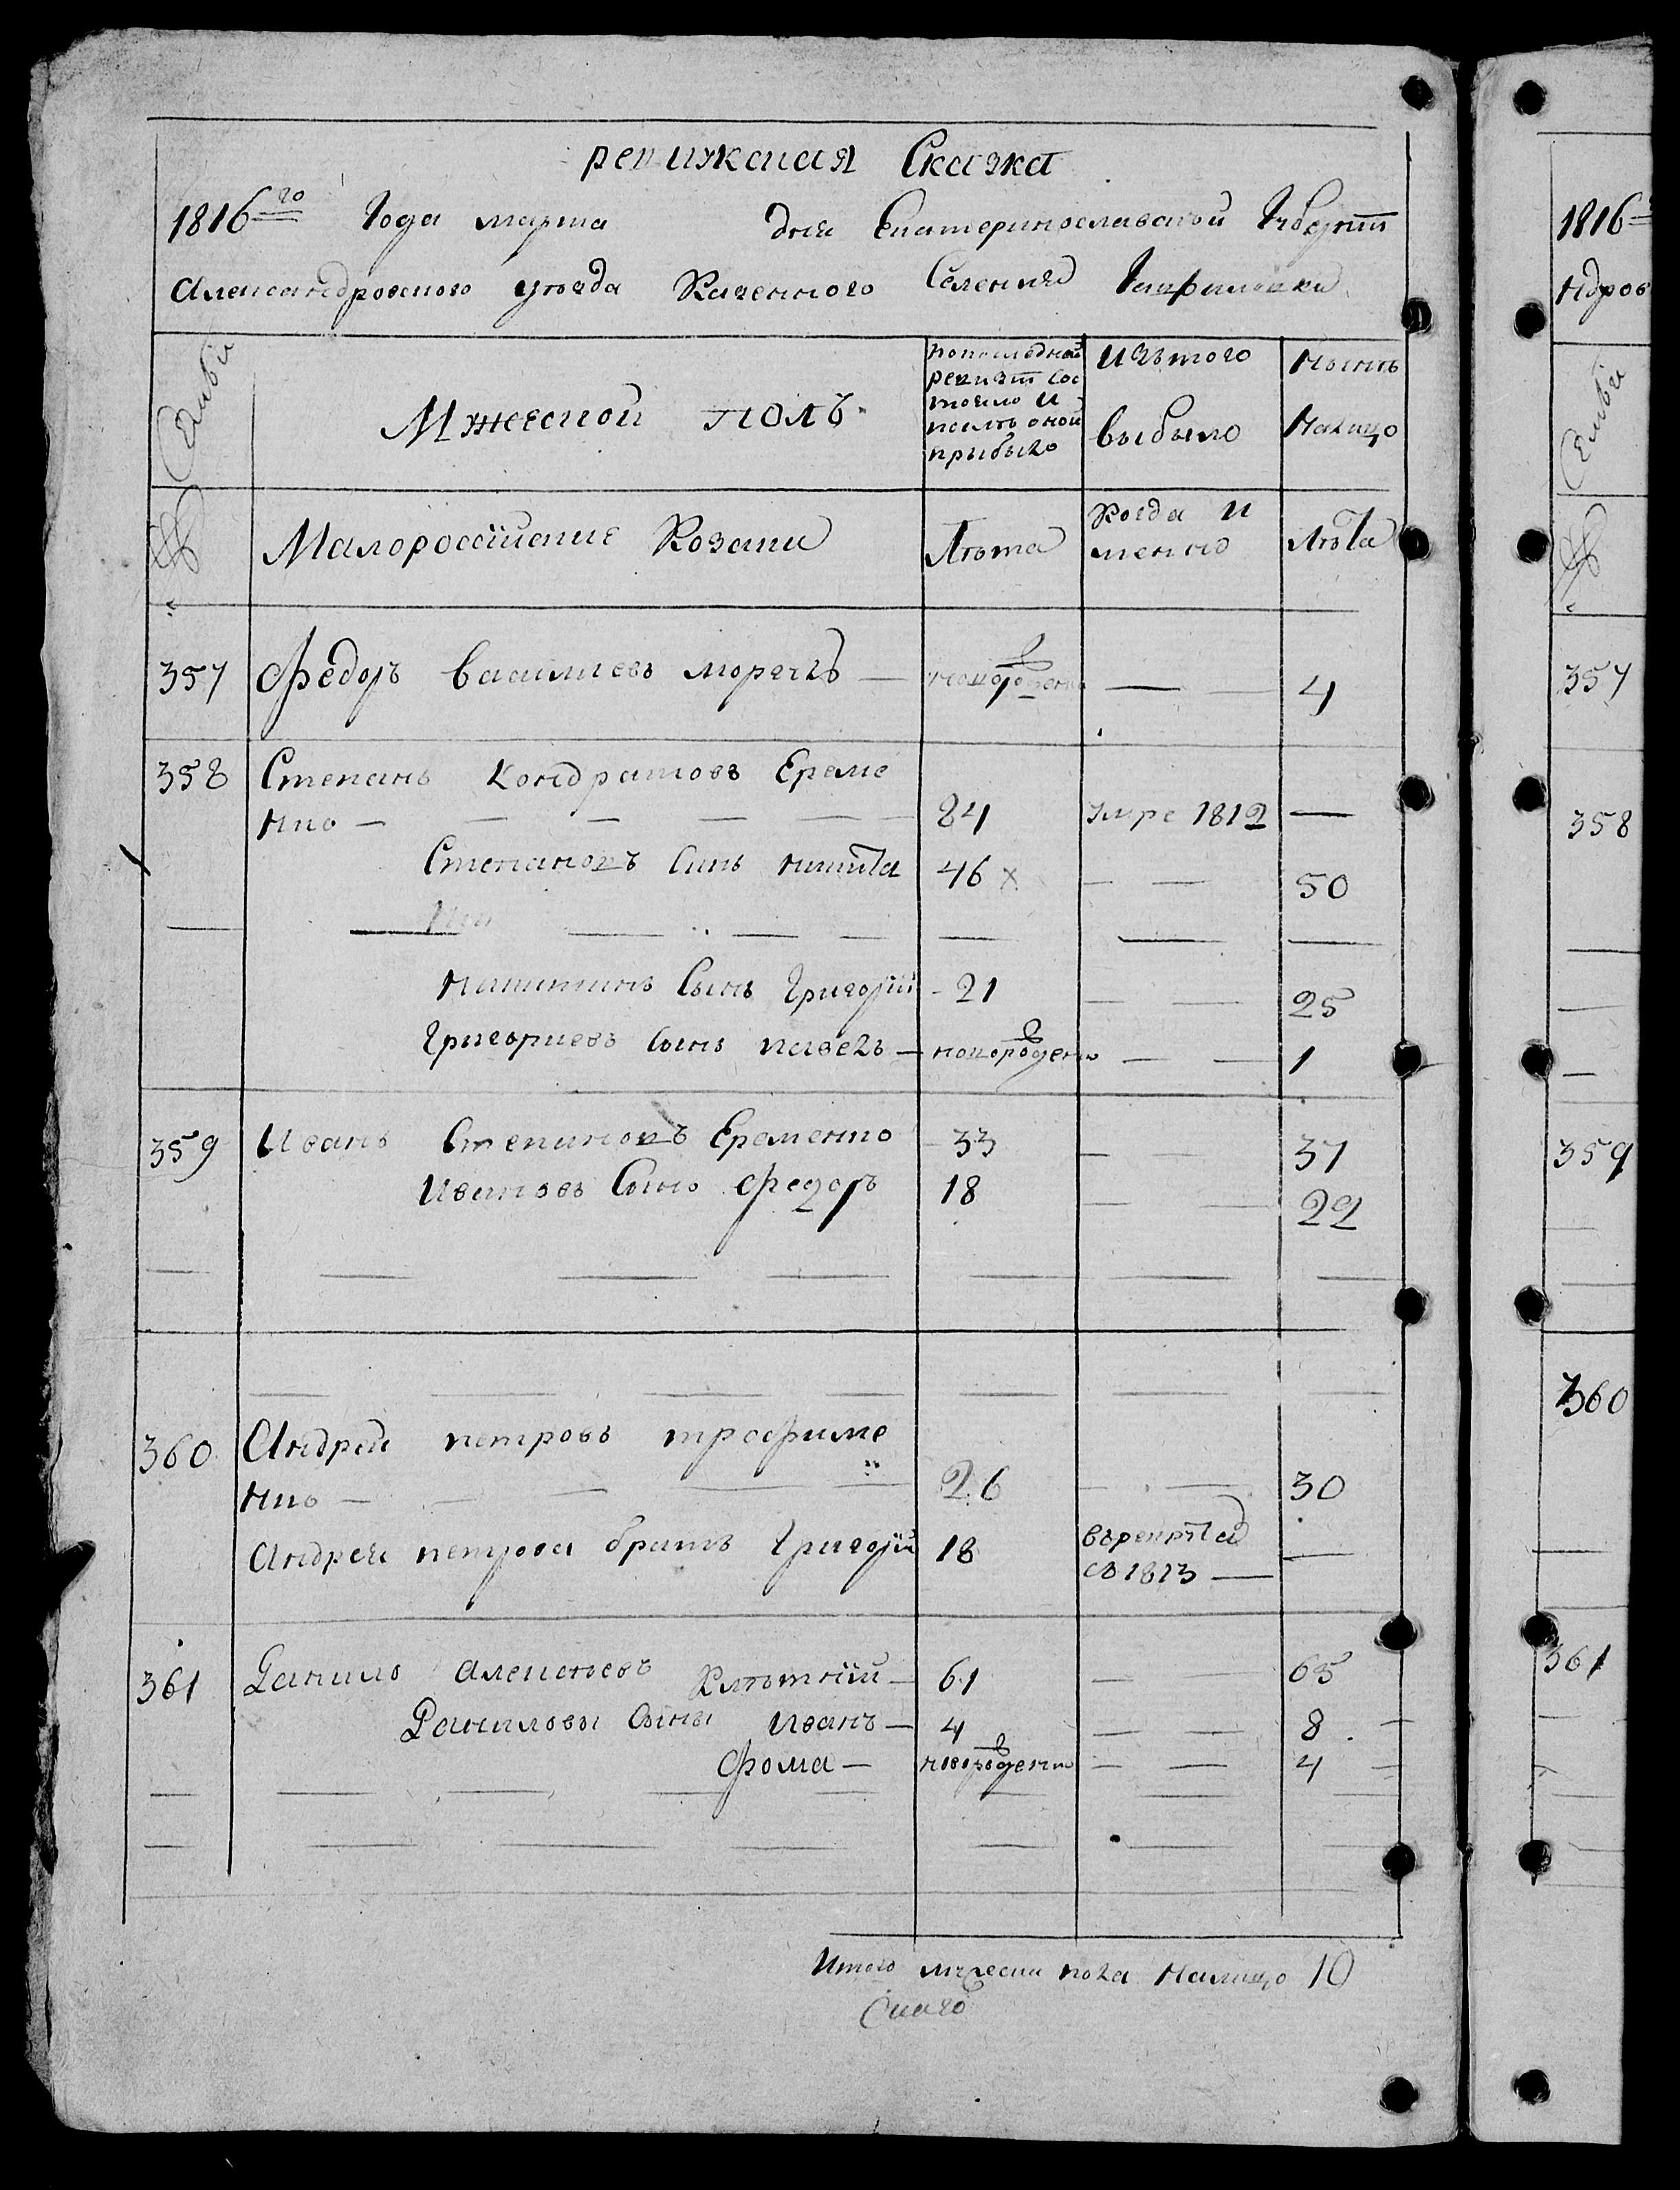 ревижская Сказка
1816го Года марта дня Екатеринославской Губернїи
Александровского уезда Казенного Селения
Семьи
Мжеской полъ
по последней
ревизїи сос
тояло и
после оной
прибыло
Изътого
выбыло
Ныне
Налицо
№
Малороссїйские Козаки
Лѣта
Когда и
менно
Лѣта
357 Федоръ Василиевъ — новорожденъ — — 4
358 Степанъ Кондратовъ Ереме
нко — — — — 84 умре 1812 —
Степановъ Синъ Никита 46 x — — 50
Никитинъ Сынъ Григорїй - 21 — — 25
Григориевъ Сынъ павелъ — новорожденъ — — 1
359 Иванъ Степановъ Еременко 33 — — 37
Ивановъ Сынъ Федоръ 18 — — 22
360 Андрей петровъ трофиме
нко — — — — 26 — — 30
Андрея петрова братъ Григорїй 18 въ рекрута —
съ 1813 —
361 Данило Алексеевъ — 61 — 65
Даниловы Сыны Иванъ — 4 — — 8
Фома — новорожденъ — — 4
Итого мужеска пола Налицо 10
1816
ндров
Семьи
№
357
358
359
360
361